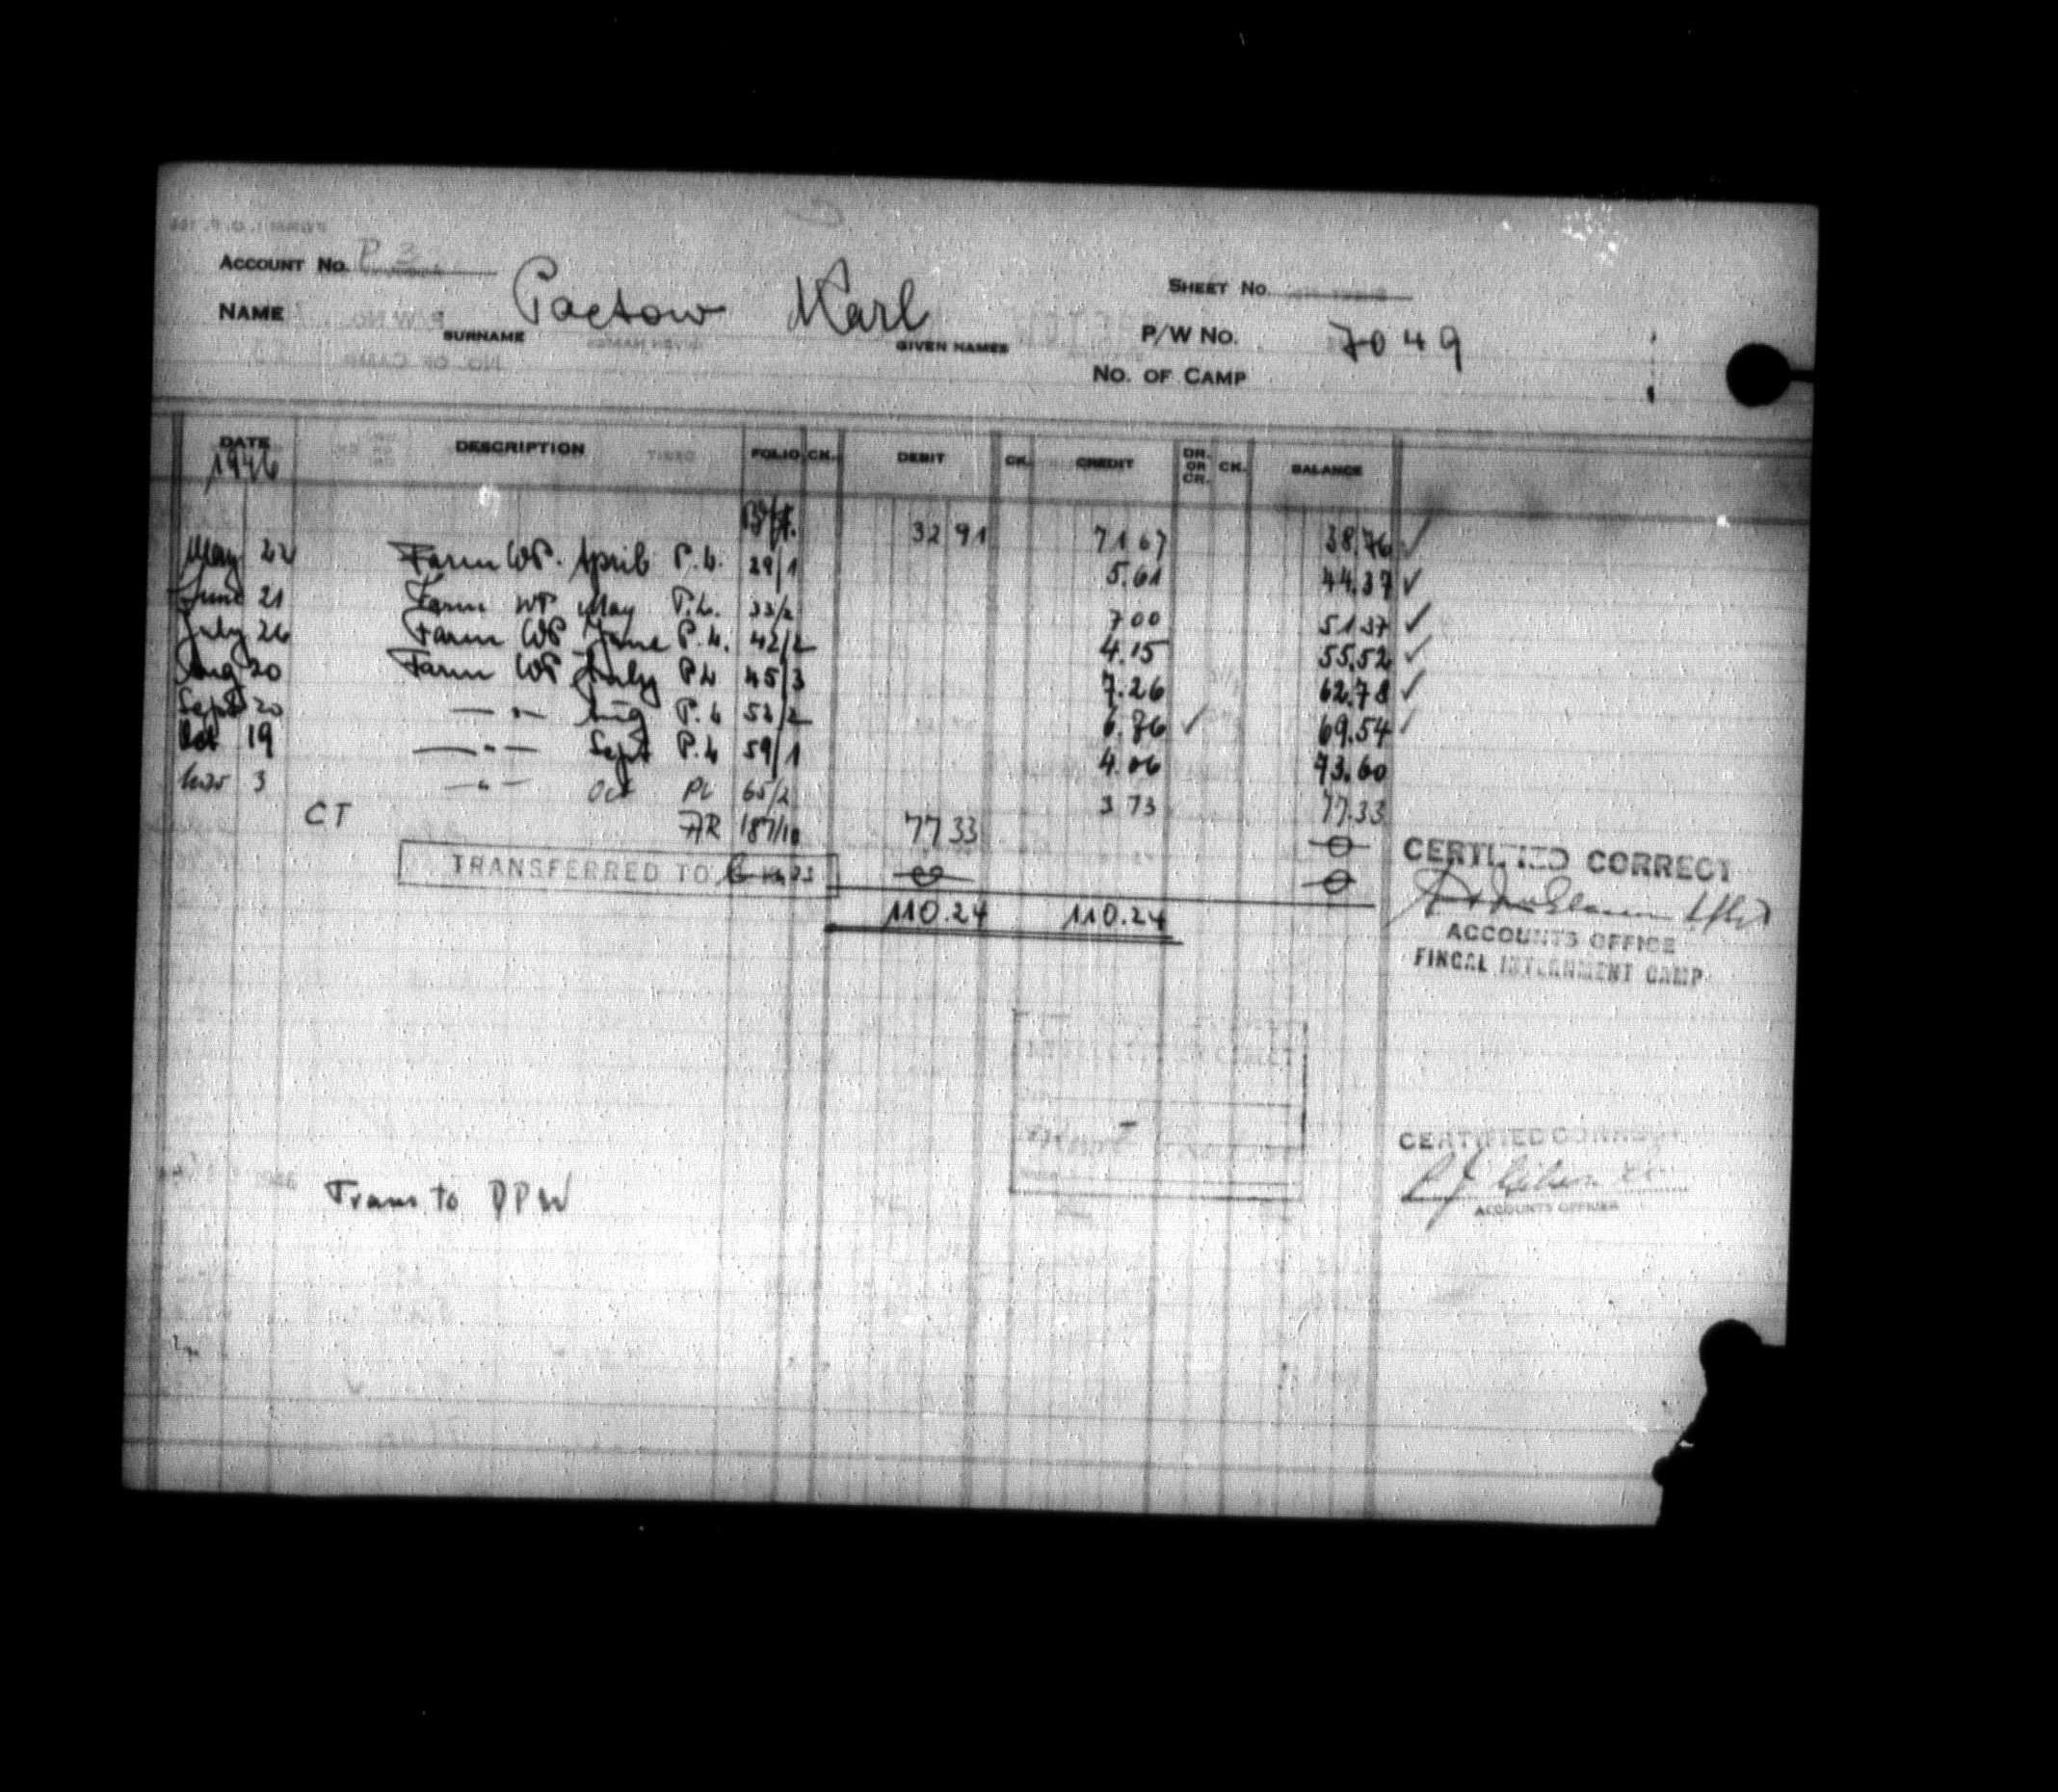 ACCOUNT NO. P 3
NAME Paetow Karl SHEET NO.
SURNAME GIVEN NAMES P/W NO. 7049
NO. OF CAMP
DATE DESCRIPTION FOLIO CK. DEBIT CK. CREDIT DR. OR CR. CK. BALANCE
1946
B/f. 32 91 71 67 38.76 ✓
May 22 Farm WP. April P.L. 29/1 5.61 44.37 ✓
June 21 Farm WP May P.L. 33/2 7 00 51 37 ✓
July 26 Farm WP June P.L. 42/2 4.15 55.52 ✓
Aug 20 Farm WP July PL 45/3 7.26 62.78 ✓
Sept 20 — " — Aug P.L 52/2 6.86 ✓ 69.54 ✓
Oct 19 — " — Sept P.L 59/1 4.06 73.60
Nov 3 — " — Oct PL 65/2 3 73 77.33
CT AR 187/10 77 33 0
TRANSFERRED TO 0 0
110.24 110.24
CERTIFIED CORRECT
ACCOUNTS OFFICE
FINGAL INTERNMENT CAMP
CERTIFIED CORRECT
Trans to DPW
ACCOUNTS OFFICER